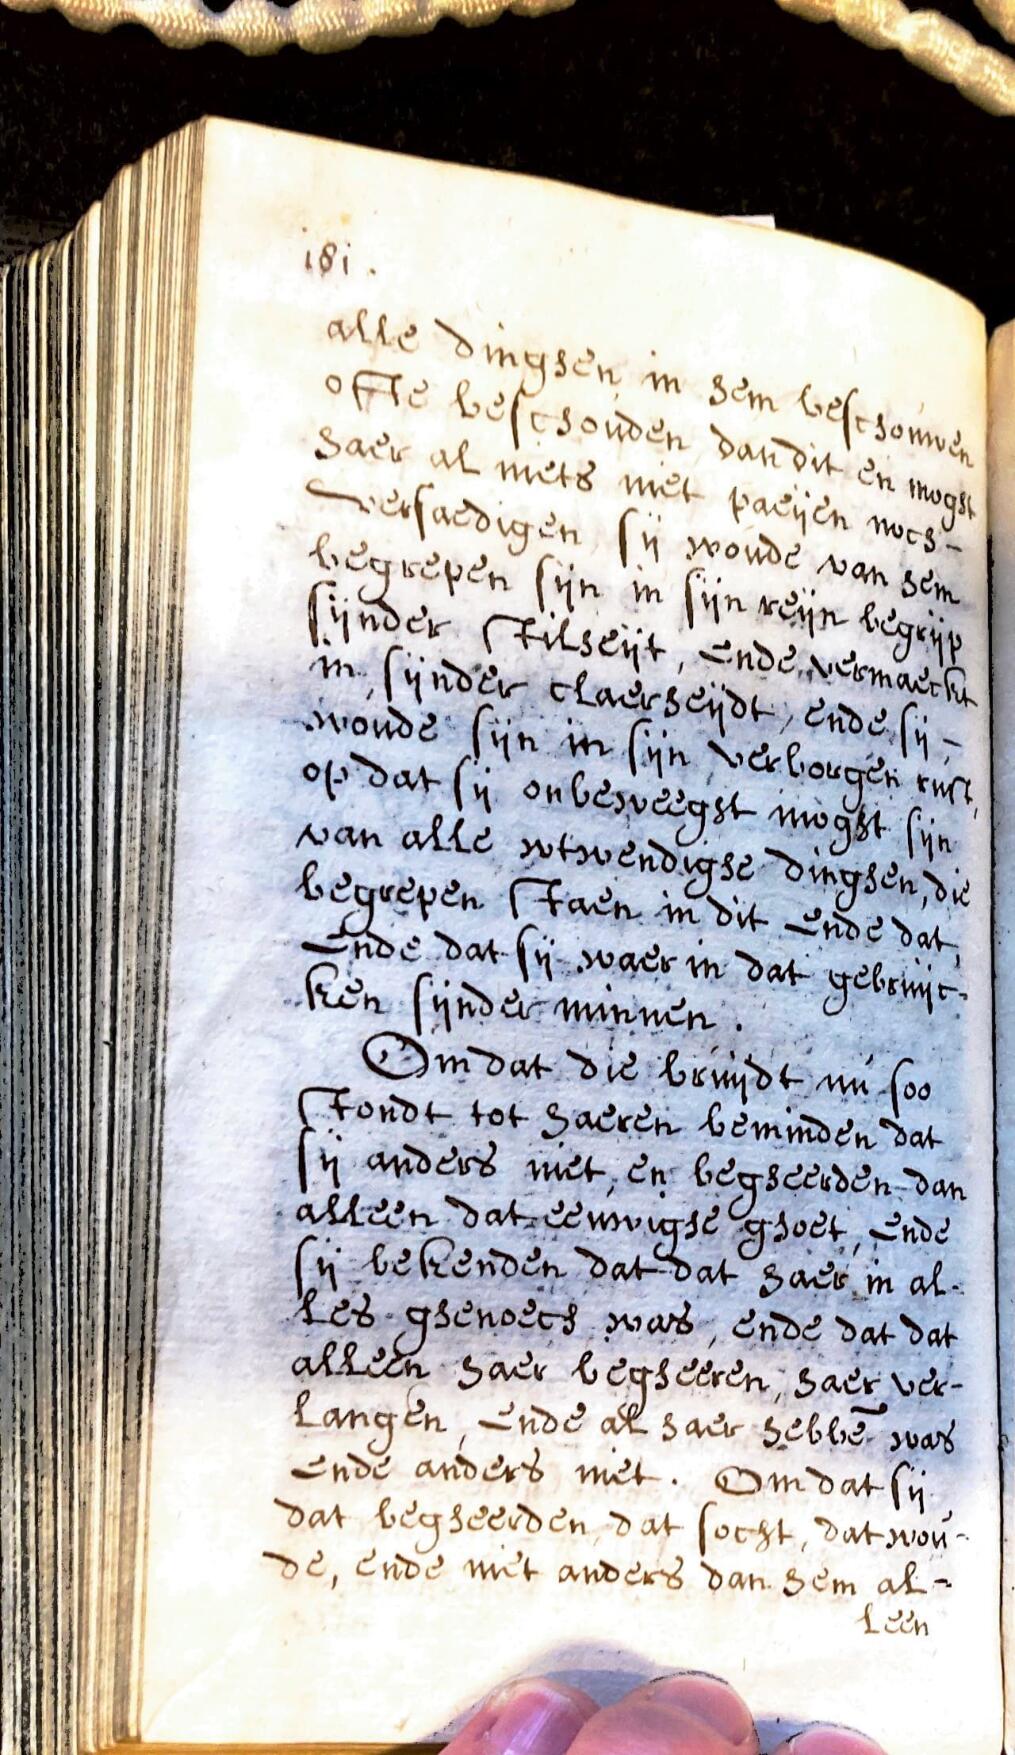 181.
alle dinghen in hem beschouwen
ofte beschouden, dan dit en moght
haer al niets niet paeijen noch-
versaedigen, sij woude van hem
begrepen sijn in sijn reijn begrijp
sijnder stilheijt, ende vermaeckt
in sijnder claerheijdt, ende sij-
woude sijn in sijn verborgen rust,
op dat sij onbeweeght moght sijn
van alle wtwendighe dinghen, die
begrepen staen in dit ende dat,
Ende dat sij waer in dat gebruijc-
ken sijnder minnen.
Omdat die bruijdt nu soo
stondt tot haeren beminden dat
sij anders niet, en begheerden dan
alleen dat eeuwighe ghoet, ende
sij bekenden dat dat haer in al-
les ghenoech was, ende dat dat
alleen haer begheeren, haer ver-
langen, ende al haer hebbē was
ende anders niet. Omdat sij
dat begheerden, dat socht, dat wou-
de, ende niet anders dan hem al-
leen